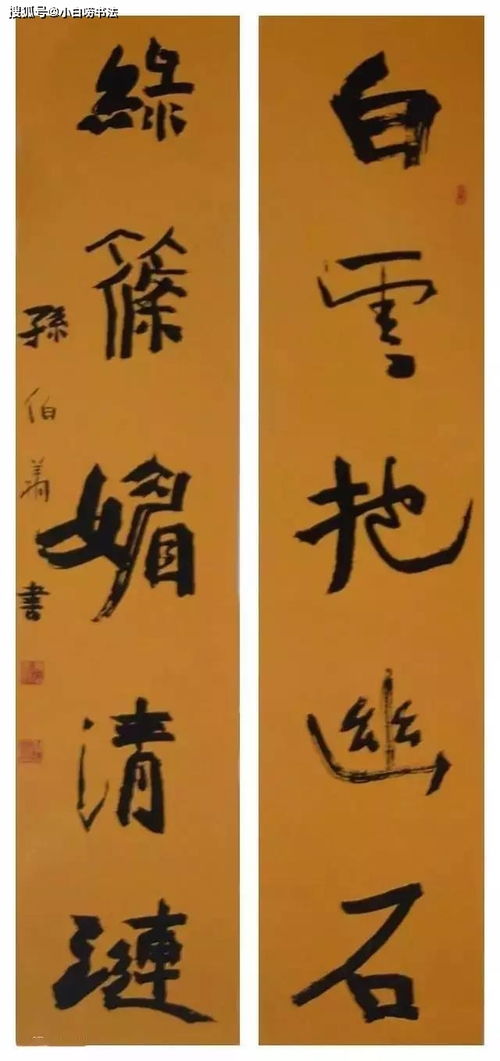 搜狐号@小白唠书法
白雲抱幽石
綠篠媚清漣
孫伯翔書